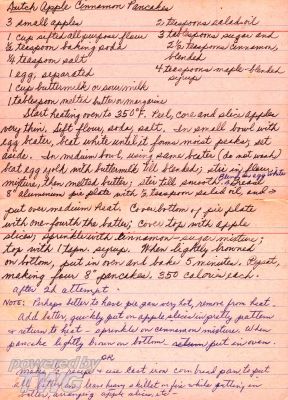 Dutch Apple Cinnamon Pancakes
3 small apples
1 cup sifted all purpose flour
1/2 teaspoon baking soda
1/4 teaspoon salt
1 egg, separated
1 cup buttermilk or sour milk
1 tablespoon melted butter or margarine
2 teaspoons salad oil
3 tablespoons sugar and
2 1/2 teaspoons cinnamon,
blended
4 teaspoons maple-blended
syrup
Start heating oven to 350°F. Peel, core and slice apples
very thin. Sift flour, soda, salt. In small bowl with
egg beater, beat white until it forms moist peaks; set
aside. In medium bowl, using same beater (do not wash)
beat egg yolk with buttermilk till blended; stir in flour
mixture, then melted butter; stir till smooth. Blend in egg white
Spread
8" aluminum pie plate with 1/2 teaspoon salad oil, and
put over medium heat. Cover bottom of pie plate
with one-fourth the batter; cover top with apple
slices; sprinkle with cinnamon-sugar mixture;
top with 1 tspn. syrup. When lightly browned
on bottom, put in oven and bake 5 minutes. Repeat,
making four 8" pancakes. 350 calories each.
After 2d attempt.
NOTE: Perhaps better to have pie pan very hot, remove from heat.
Add batter, quickly put on apple slices in pretty pattern
& return to heat - sprinkle on cinnamon mixture. When
pancake lightly brown on bottom return put in oven.
OR
make & use cast iron corn bread pan to put
heavy skillet on fire while putting in
batter, arranging apple slices, etc.
powered by